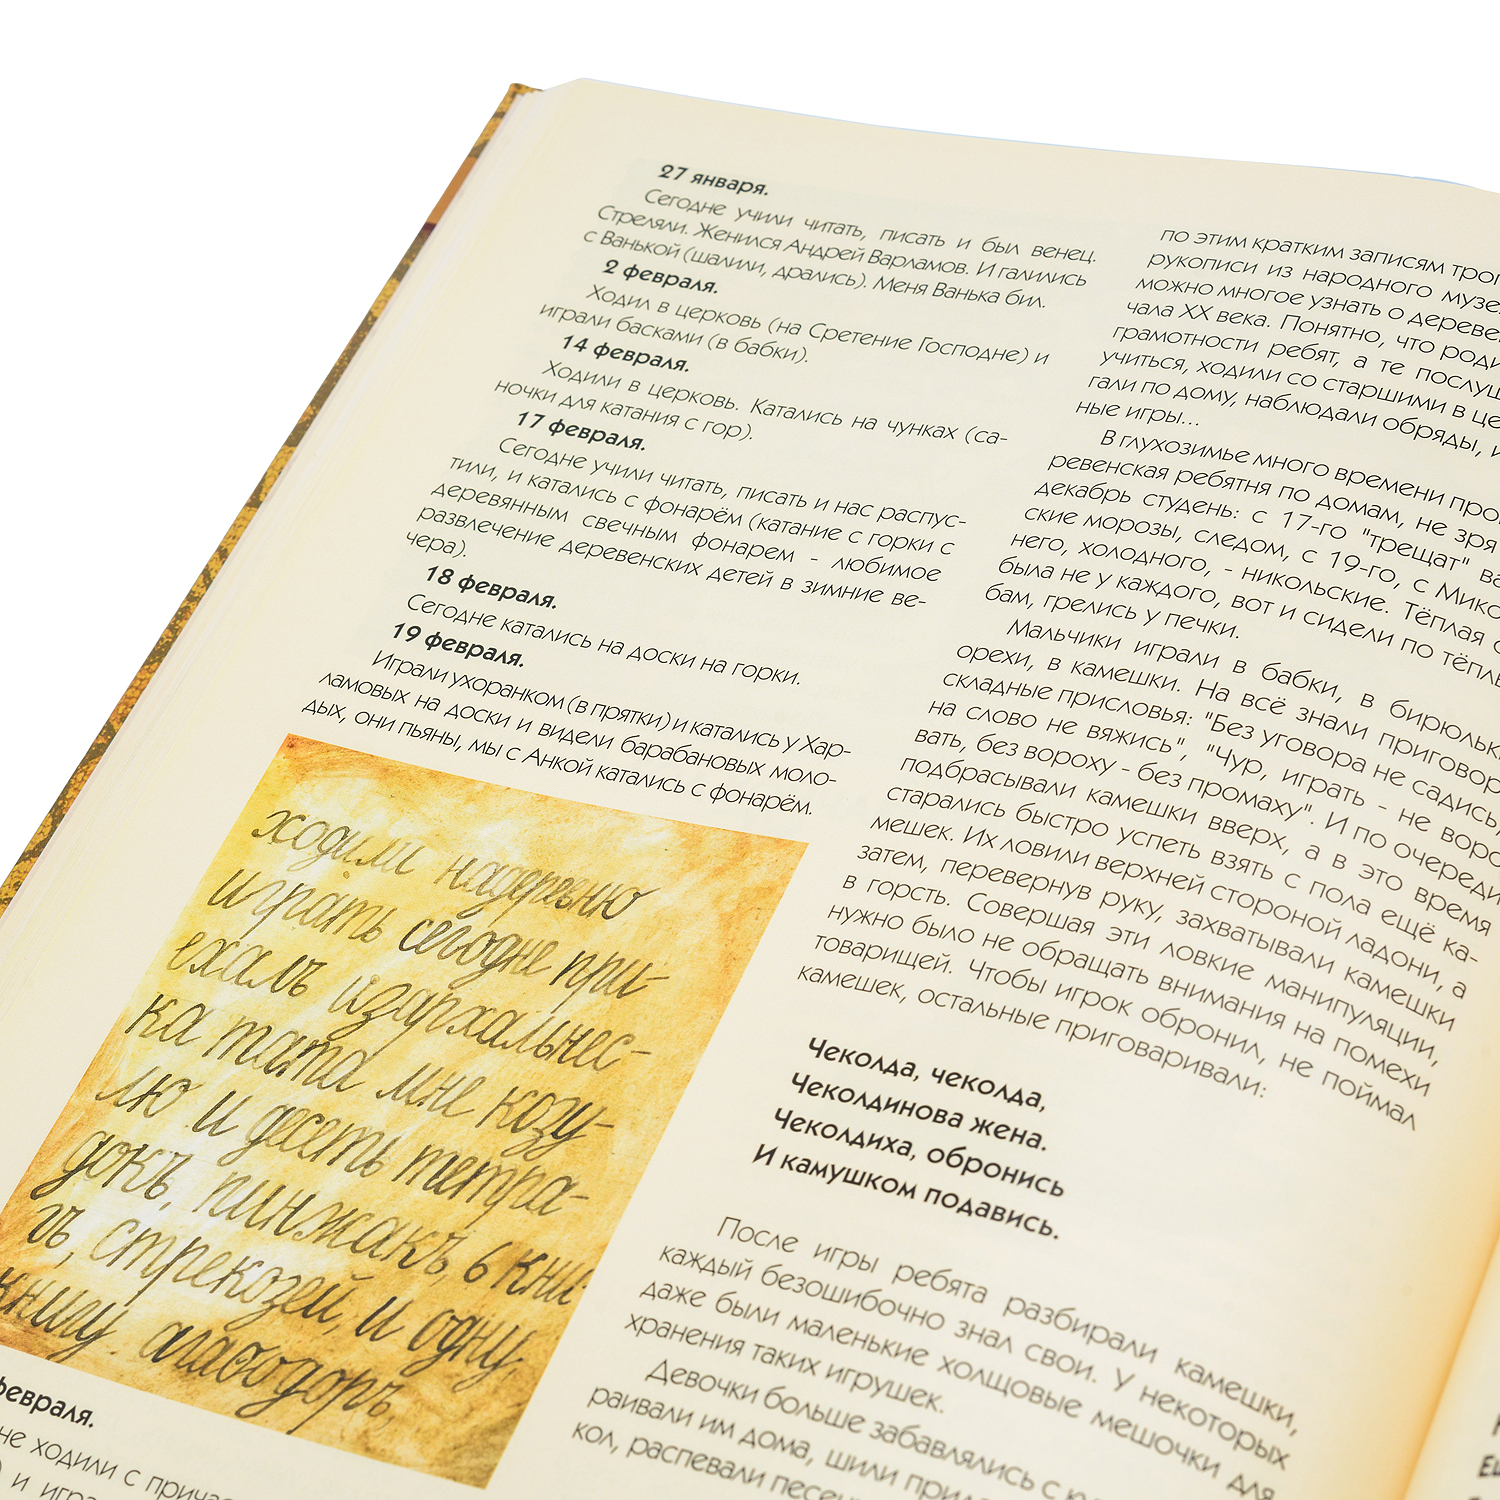 27 января.
Сегодне учили читать, писать и был венец.
Стреляли. Женился Андрей Варламов. И галились
с Ванькой (шалили, дрались). Меня Ванька бил.
2 февраля.
Ходил в церковь (на Сретение Господне) и
играли басками (в бабки).
14 февраля.
Ходили в церковь. Катались на чунках (са-
ночки для катания с гор).
17 февраля.
Сегодне учили читать, писать и нас распус-
тили, и катались с фонарём (катание с горки с
деревянным свечным фонарем - любимое
развлечение деревенских детей в зимние ве-
чера).
18 февраля.
Сегодне катались на доски на горки.
19 февраля.
Играли ухоранком (в прятки) и катались у Хар-
ламовых на доски и видели барабановых моло-
дых, они пьяны, мы с Анкой катались с фонарём.
ходили надеревню
играть сегодне при-
ехалъ изархальнес-
ка тата мне козу-
лю и десеть тетра-
докъ, пинжакъ, 6 кни-
гъ, стрекозей, и одну,
книгу. агаѳодоръ,
февраля.
не ходили с
) и
по этим кратким записям
рукописи из народного
можно многое узнать о
чала XX века. Понятно, что
грамотности ребят, а те
учиться, ходили со старшими в
гали по дому, наблюдали обряды,
ные игры...
В глухозимье много времени
ревенская ребятня по домам, не зря
декабрь студень: с 17-го "трещат"
ские морозы, следом, с 19-го, с
него, холодного, - никольские. Тёплая
была не у каждого, вот и сидели по
бам, грелись у печки.
Мальчики играли в бабки, в
орехи, в камешки. На всё знали
складные присловья: "Без уговора не садись,
на слово не вяжись", "Чур, играть - не
вать, без вороху - без промаху". И по очереди
подбрасывали камешки вверх, а в это время
старались быстро успеть взять с пола ещё ка-
мешек. Их ловили верхней стороной ладони, а
затем, перевернув руку, захватывали камешки
в горсть. Совершая эти ловкие манипуляции,
нужно было не обращать внимания на помехи
товарищей. Чтобы игрок обронил, не поймал
камешек, остальные приговаривали:
Чеколда, чеколда,
Чеколдинова жена.
Чеколдиха, обронись
И камушком подавись.
После игры ребята разбирали камешки,
каждый безошибочно знал свои. У некоторых
даже были маленькие холщовые мешочки для
хранения таких игрушек.
Девочки больше забавлялись с
раивали им дома, шили
кол, распевали